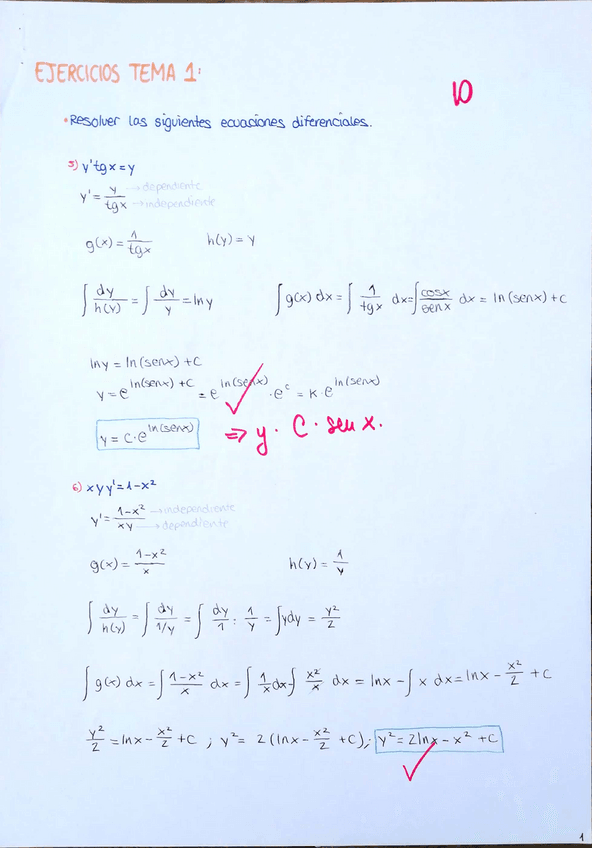 EJERCICIOS TEMA 1:
10
•Resolver las siguientes ecuaciones diferenciales.
5) y'tgx=y
y' = y/tgx →dependiente →independiente
g(x) = 1/tgx h(y) = y
∫ dy/h(y) = ∫ dy/y = lny ∫ g(x) dx = ∫ 1/tgx dx = ∫ cosx/senx dx = ln(senx)+c
lny = ln(senx)+c
y = e^ln(senx)+c = e^ln(senx) · e^c = k·e^ln(senx)
y = c·e^ln(senx) ⇒ y · C · sen x.
6) xyy' = 1-x²
y' = 1-x²/xy →independiente →dependiente
g(x) = 1-x²/x h(y) = 1/y
∫ dy/h(y) = ∫ dy/1/y = ∫ dy/1 : 1/y = ∫ydy = y²/2
∫ g(x) dx = ∫ 1-x²/x dx = ∫ 1/x dx-∫ x²/x dx = lnx - ∫ x dx = lnx - x²/2 + c
y²/2 = lnx - x²/2 + c ; y² = 2(lnx - x²/2 + c); y² = 2lnx - x² + c
1